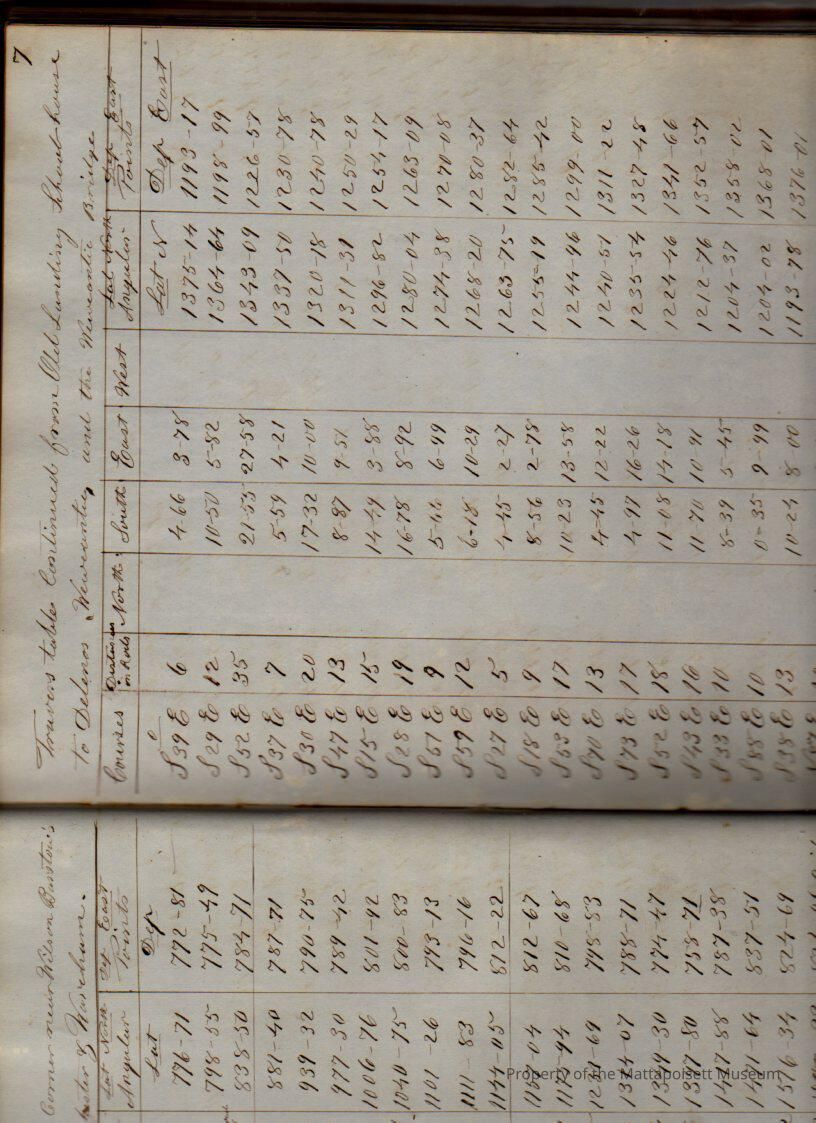 7
Travers table Continued from Old Landing School house
to Delenos Wewantit, and the Wewantit Bridge
Courses Distan in Rods North South East West Lat North Angular Dep East Points
Lat N Dep East
S 39 E 6 4-66 3-78 1375-14 1193-17
S 29 E 12 10-50 5-82 1364-64 1198-99
S 52 E 35 21-55 27-58 1343-09 1226-57
S 37 E 7 5-59 4-21 1337-50 1230-78
S 30 E 20 17-32 10-00 1320-18 1240-78
S 47 E 13 8-87 9-51 1311-31 1250-29
S 15 E 15 14-49 3-88 1296-82 1254-17
S 28 E 19 16-78 8-92 1280-04 1263-09
S 51 E 9 5-66 6-99 1274-38 1270-08
S 59 E 12 6-18 10-29 1268-20 1280-37
S 27 E 5 4-45 2-27 1263-75 1282-64
S 18 E 9 8-56 2-78 1255-19 1285-42
S 53 E 17 10-23 13-58 1244-96 1299-00
S 70 E 13 4-45 12-22 1240-51 1311-22
S 73 E 17 4-97 16-26 1235-54 1327-48
S 52 E 18 11-08 14-18 1224-46 1341-66
S 43 E 16 11-70 10-91 1212-76 1352-57
S 33 E 10 8-39 5-45 1204-37 1358-02
S 88 E 10 0-35 9-99 1204-02 1368-01
S 38 E 13 10-24 8-00 1193-78 1376-01
Corner near Wilson Barstow's
& Wareham.
Lat North Angular Dep East Points
Lat Dep
776-71 772-81
798-55 775-49
838-50 784-71
881-40 787-71
939-32 790-75
977-30 789-42
1006-76 801-92
1040-75 800-83
1101-26 793-13
1111-83 796-16
1144-05 812-22
812-67
810-68
798-83
788-71
774-47
758-71
787-38
837-51
1576-34 824-69
Property of the Mattapoisett Museum